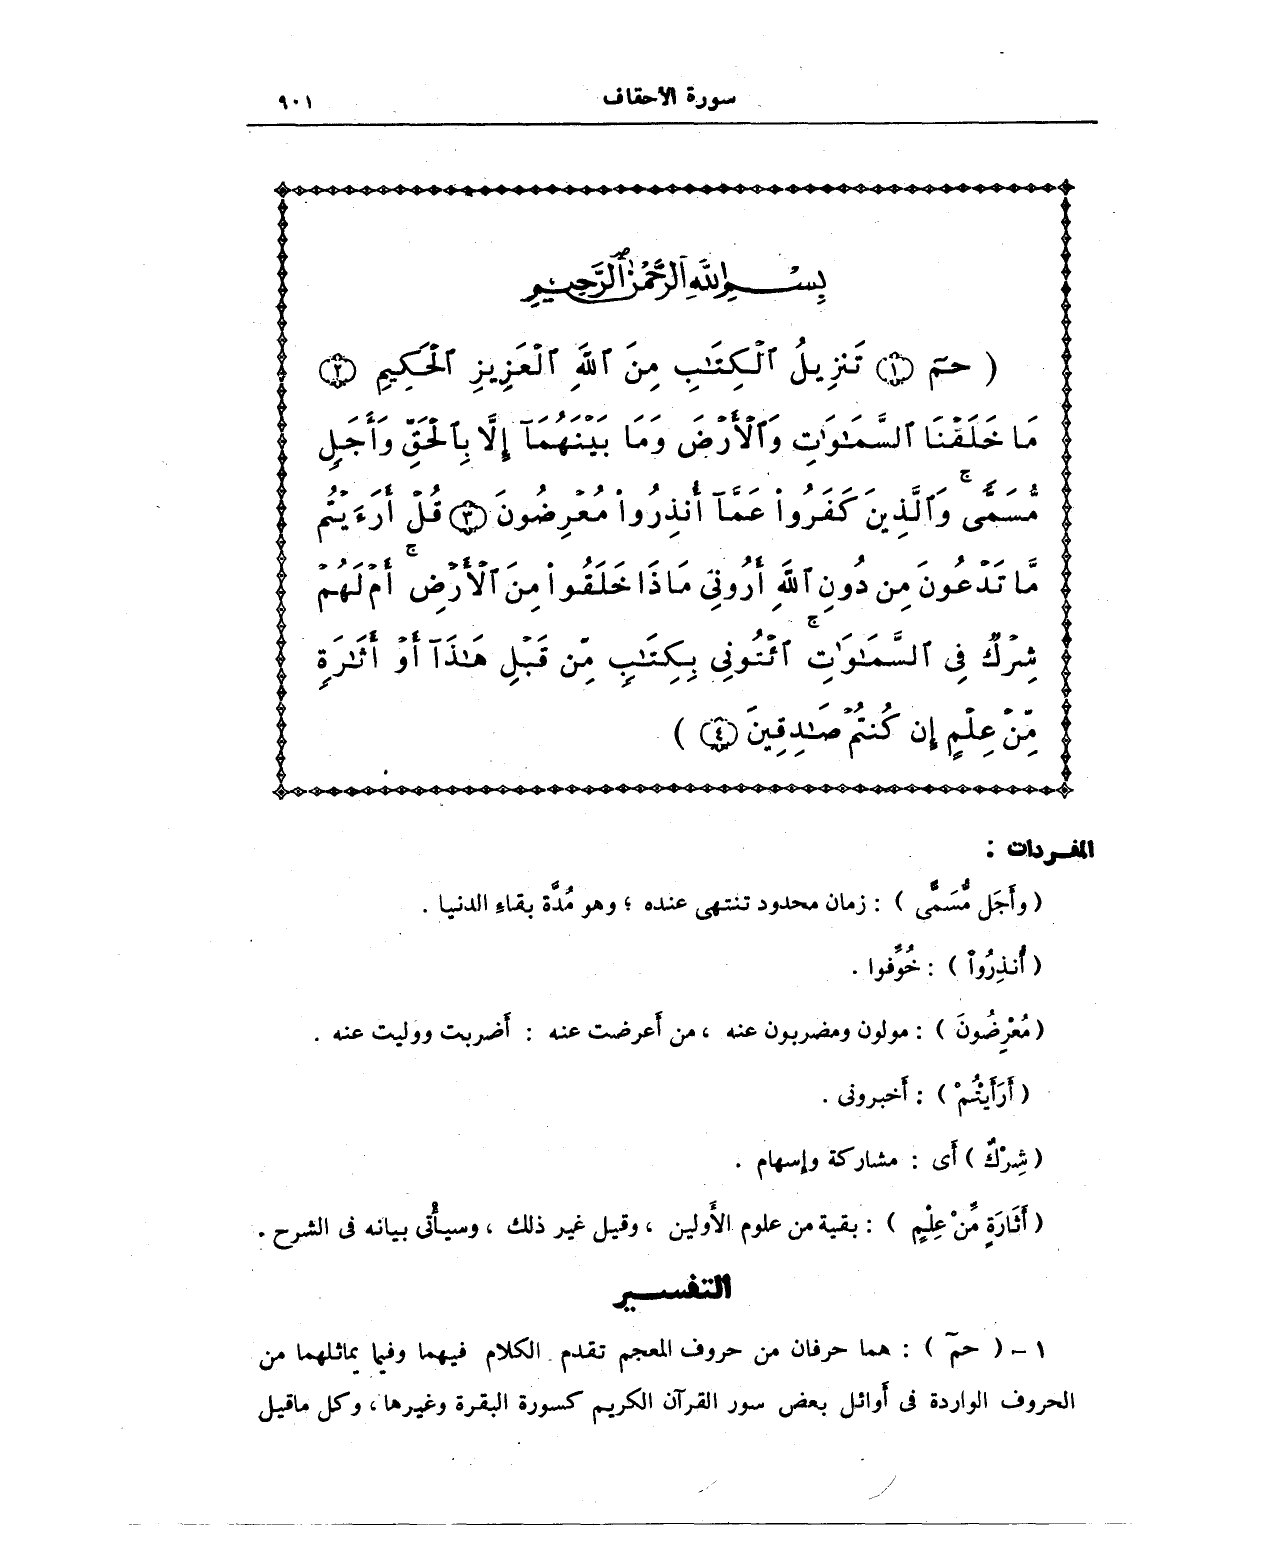 سورة الأحقاف ٩٠١
بِسْمِ اللَّهِ الرَّحْمَٰنِ الرَّحِيمِ
( حمٓ ۝١ تَنزِيلُ ٱلْكِتَٰبِ مِنَ ٱللَّهِ ٱلْعَزِيزِ ٱلْحَكِيمِ ۝٢
مَا خَلَقْنَا ٱلسَّمَٰوَٰتِ وَٱلْأَرْضَ وَمَا بَيْنَهُمَآ إِلَّا بِٱلْحَقِّ وَأَجَلٍ
مُّسَمًّى ۚ وَٱلَّذِينَ كَفَرُوا۟ عَمَّآ أُنذِرُوا۟ مُعْرِضُونَ ۝٣ قُلْ أَرَءَيْتُم
مَّا تَدْعُونَ مِن دُونِ ٱللَّهِ أَرُونِى مَاذَا خَلَقُوا۟ مِنَ ٱلْأَرْضِ ۚ أَمْ لَهُمْ
شِرْكٌ فِى ٱلسَّمَٰوَٰتِ ۚ ٱئْتُونِى بِكِتَٰبٍ مِّن قَبْلِ هَٰذَآ أَوْ أَثَٰرَةٍ
مِّنْ عِلْمٍ إِن كُنتُمْ صَٰدِقِينَ ۝٤ )
المفـردات :
( وأَجَل مُّسَمًّى ) : زمان محدود تنتهى عنده ؛ وهو مُدَّة بقاءِ الدنيا .
( أُنذِرُواْ ) : خُوِّفوا .
( مُعْرِضُونَ ) : مولون ومضربون عنه ، من أَعرضت عنه : أَضربت ووليت عنه .
( أَرَأَيْتُمْ ) : أَخبرونى .
( شِرْكٌ ) أَى : مشاركة وإسهام .
( أَثَارَةٍ مِّنْ عِلْمٍ ) : بقية من علوم الأَولين ، وقيل غير ذلك ، وسيأْتى بيانه فى الشرح .
التفسـير
١ - ( حمٓ ) : هما حرفان من حروف المعجم تقدم الكلام فيهما وفيما يماثلهما من
الحروف الواردة فى أَوائل بعض سور القرآن الكريم كسورة البقرة وغيرها ، وكل ماقيل